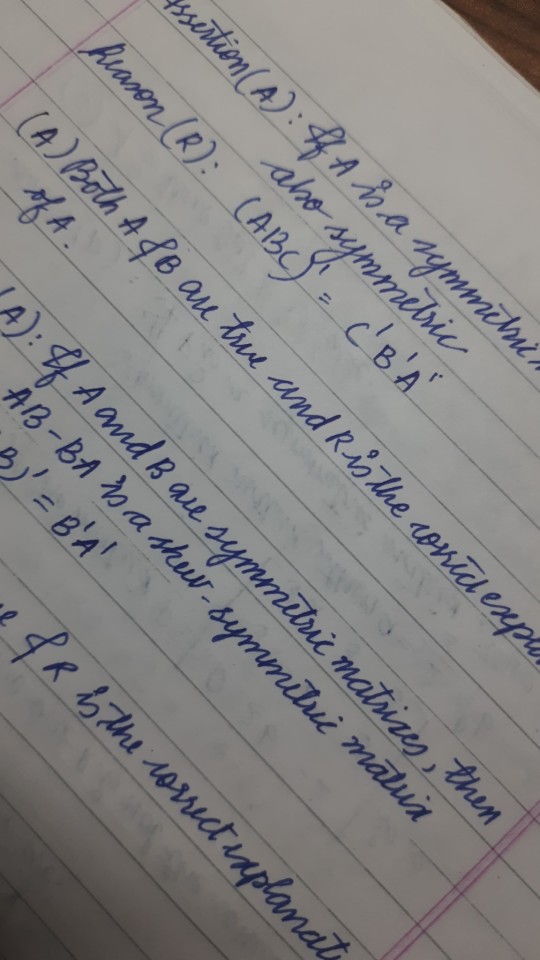 Assertion (A): If A is a symmetric
also symmetric
Reason (R): (ABC)' = C'B'A'
(A) Both A & B are true and R is the correct expla
of A.
(A): If A and B are symmetric matrizes, then
AB-BA is a skew-symmetric matrix
B)' = B'A'
& R is the correct explanati